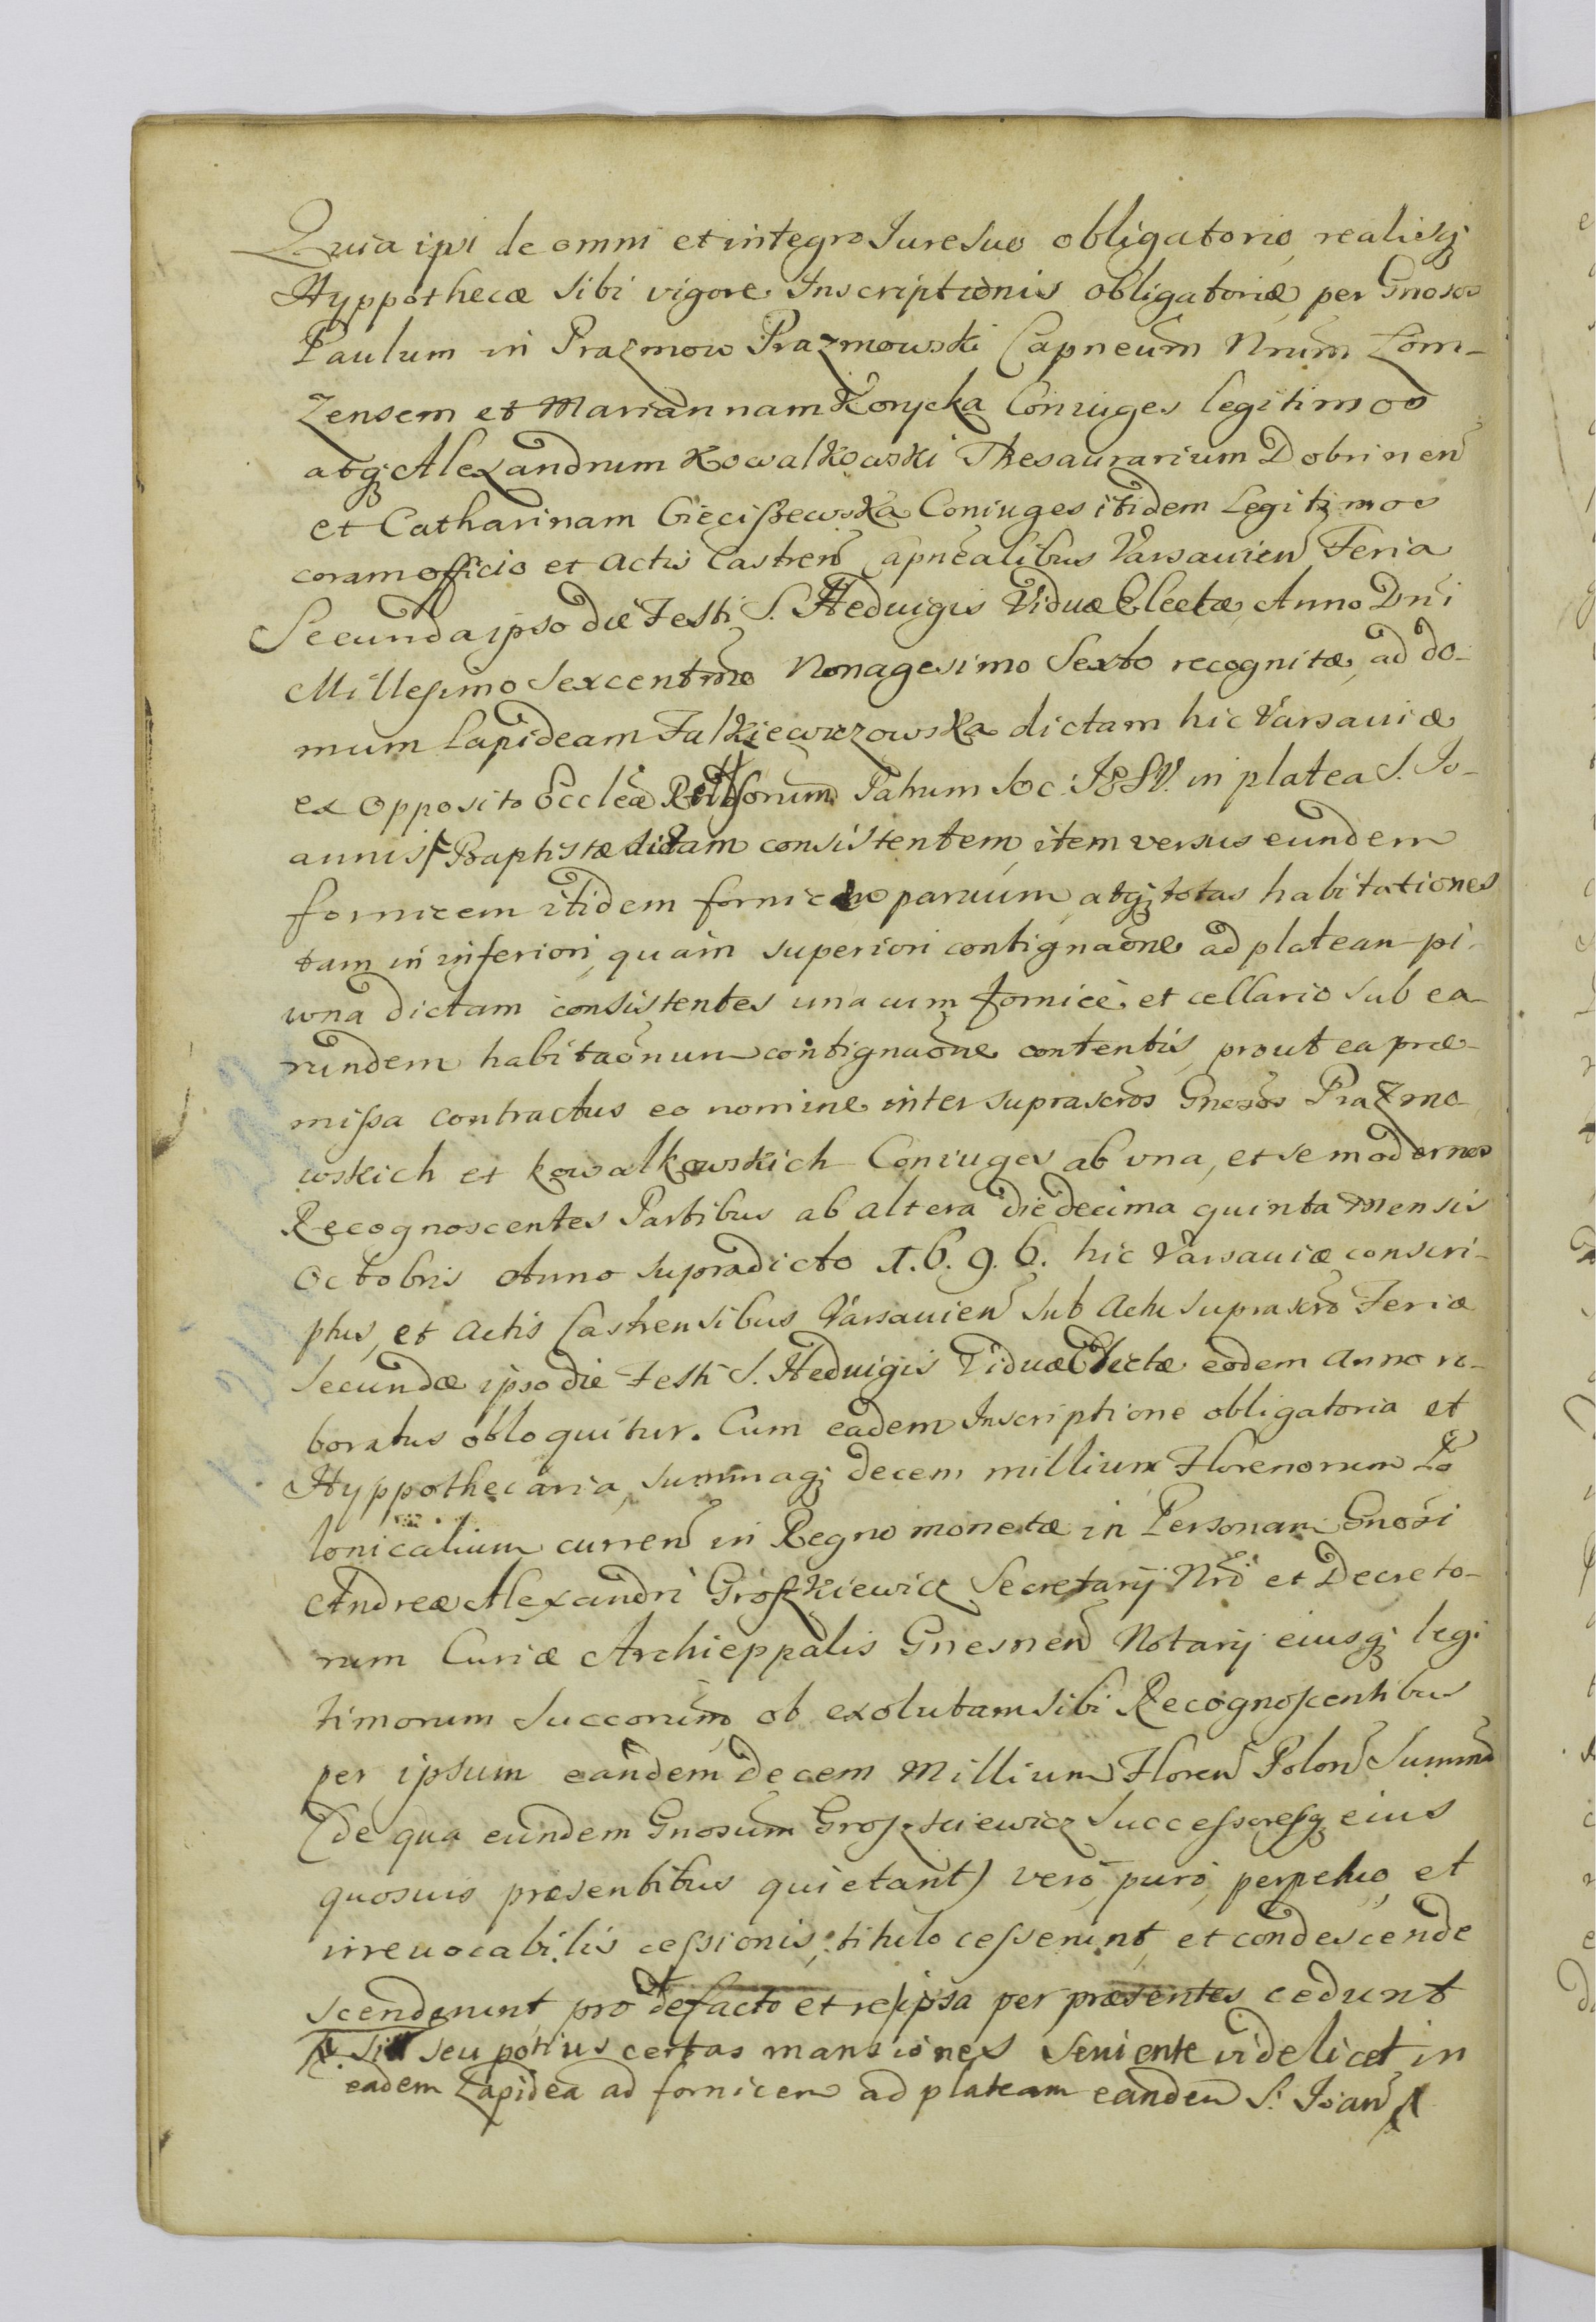 Quia ipi de omni et integro Jure suo obligatorio, realisq;
Hyppothecæ sibi vigore Inscriptionis obligatoriæ per Gnosos
Paulum in Prazmow Prazmowski Capneum Nrum Łom-
zensem et Mariannam Konycka Coniuges legitimos
atq; Alexandrum Kowalkowski Thesaurarium Dobrinen
et Catharinam Giecißewska Coniuges itidem Legitimos
coram officio et Actis Castren Capnealibus Varsavien Feria
Secunda ipso die Festi S. Heduigis Viduæ Electæ Anno Dni
Millesimo Sexcentmo Nonagesimo Sexto recognitæ, ad do-
mum Lapideam Falkiewiczowska dictam hic Varsauiæ
ex opposito Eccleæ Rellisorum Patrum Soc: JESV. in platea S. Jo-
annis Baptistæ dictam consistentem, item versus eundem
fornicem itidem fornicem paruum, atq; totas habitationes
tam in inferiori, quam superiori contignaone ad plateam pi-
wna dictam consistentes una cum fornice et cellario sub ea-
rundem habitaonum contignaone contentis, prout ea præ-
mißa contractus eo nomine inter suprascros Gnosos Prazmo-
wskich et Kowalkowskich Coniuges ab vna, et se modernos
Recognoscentes Partibus ab altera die decima quinta mensis
Octobris Anno supradicto 1.6.9.6. hic Varsauiæ conscri-
ptus, et Actis Castrensibus Varsauien sub Actu suprascro Feriæ
Secundæ ipso die Festi S. Heduigis Viduæ Electæ eodem anno ro-
boratus obloquitur. Cum eadem Inscriptione obligatoria et
Hyppothecaria, summaq; decem millium Florenorum Po
lonicalium curren in Regno monetæ in Personam Gnosi
Andreæ Alexandri Großkiewicz Secretarij Nri et Decreto-
rum Curiæ Archieppalis Gnesnen Notarij eiusq; legi
timorum Succorum ob exolutam sibi Recognoscentibus
per ipsum eandem decem Millium Floren Polon Summa
(de qua eundem Gnosum Groszkiewicz Successoresq; eius
quosuis præsentibus quietant) vero, puro, perpetuo, et
irreuocabilis cessionis, titulo cesserunt, et condescende
scenderunt, pro ut de facto et re ipsa per præsentes cedunt
seu potius certas mansiones videlicet in
eadem Lapidea ad fornicem ad plateam eandem S. Joan